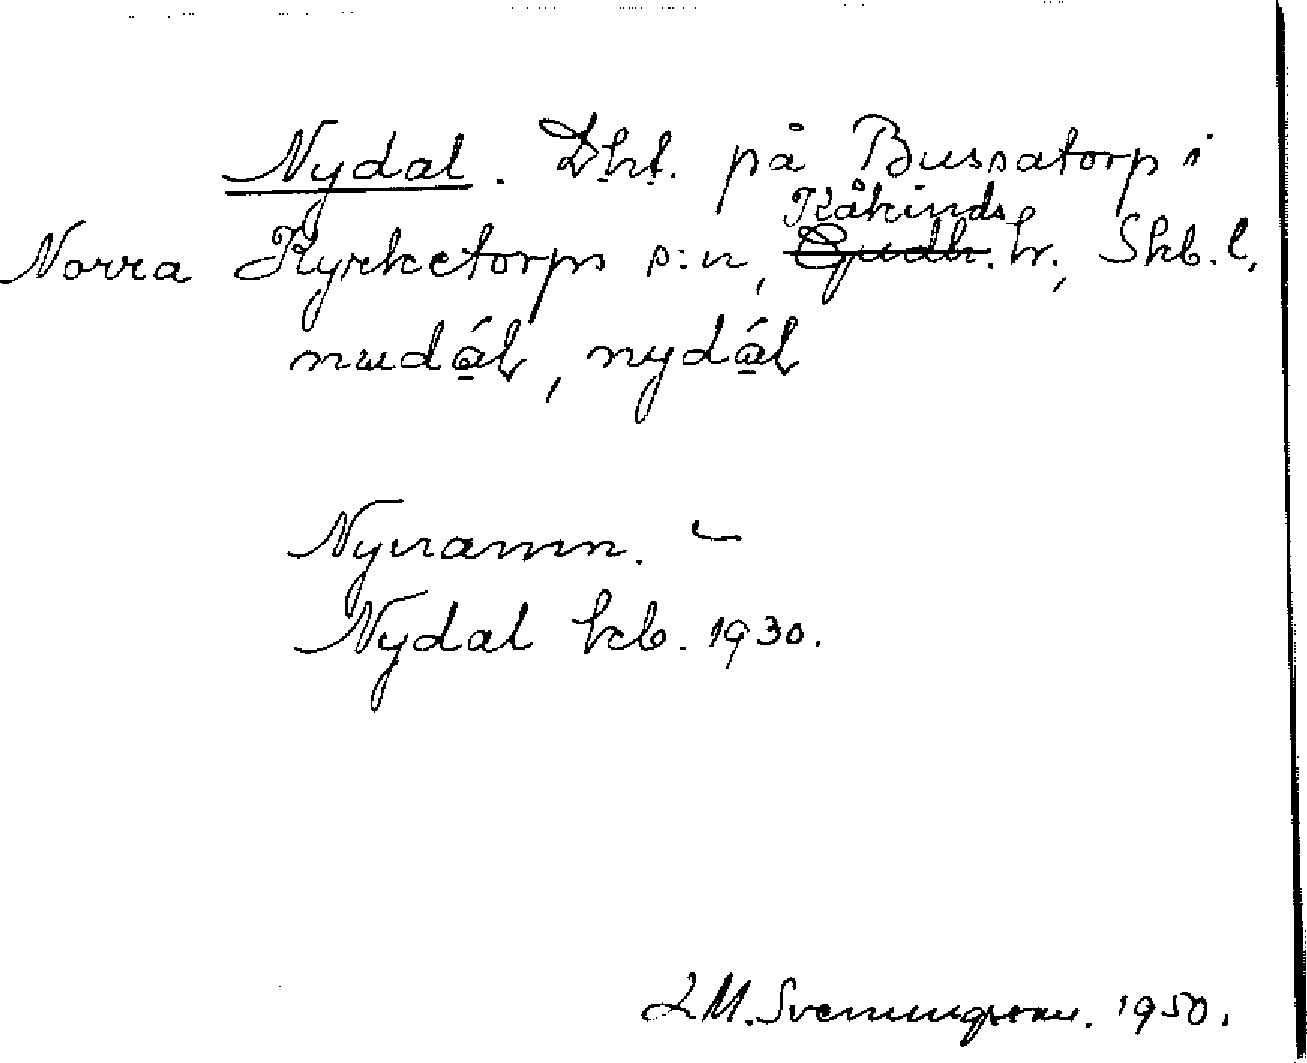 Nydal. Lht. på Bussatorp i
Kåkinds
Norra Kyrketorps s:n, Gudh. hr., Skb. l.
nudál, nydál
Nynamn.
Nydal kb. 1930.
L M. Svenningsson. 1950.